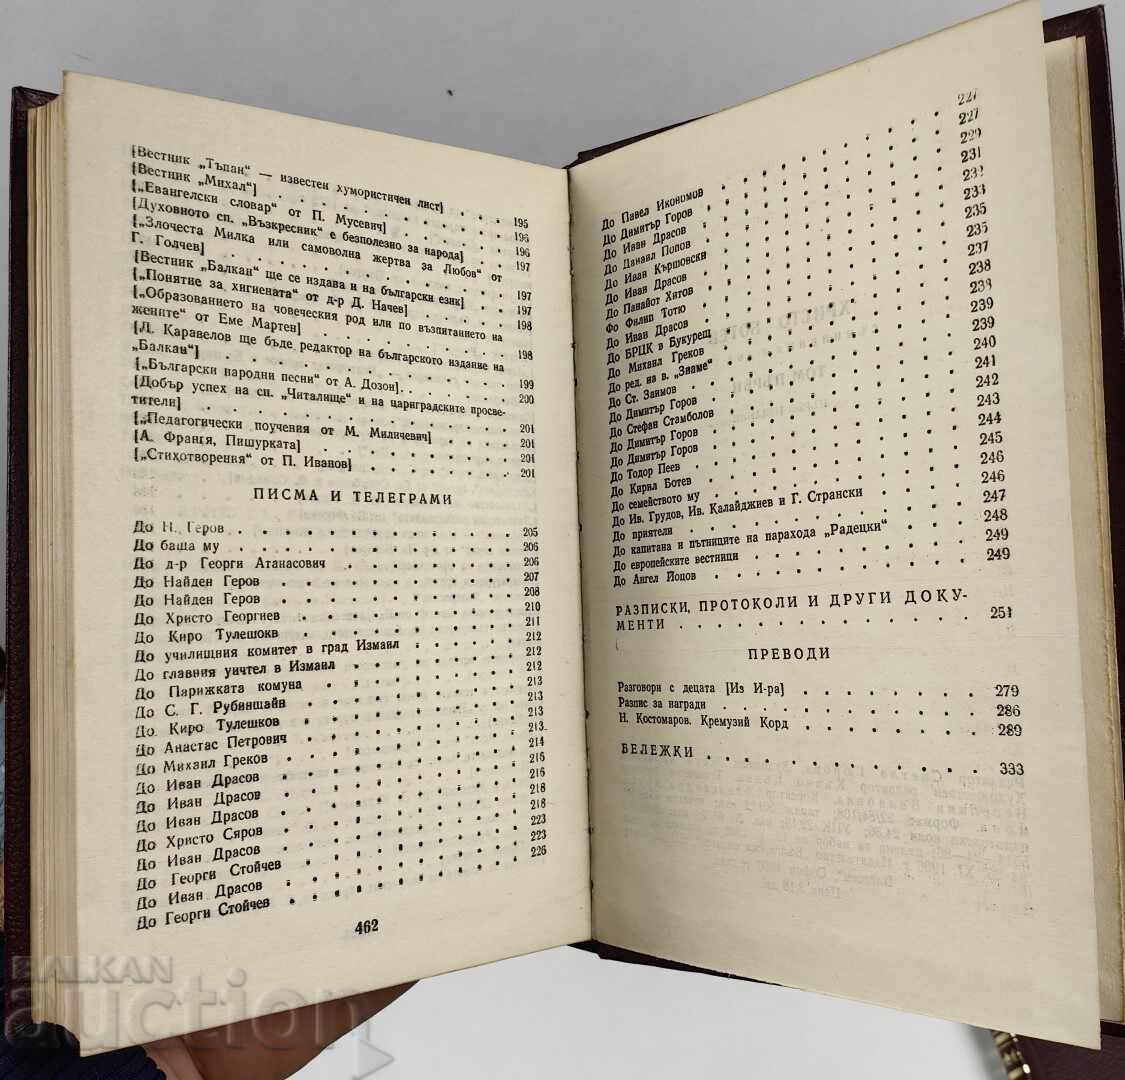 [Вестник „Тъпан“ — известен хумористичен лист] . . . 195
[Вестник „Михал“] . . . . . . . . . 196
[„Евангелски словар“ от П. Мусевич] . . . . 196
[Духовното сп. „Възкресник“ е безполезно за народа] . . . 197
[„Злочеста Милка или самоволна жертва за Любов“ от
Г. Голчев] . . . . . . . . . 197
[Вестник „Балкан“ ще се издава и на български език] . . . 197
[„Понятие за хигиената“ от д-р Д. Начев] . . . . 198
[„Образованието на човеческия род или по възпитанието на
жените“ от Еме Мартен] . . . . . . . . 198
[Л. Каравелов ще бъде редактор на българското издание на
„Балкан“] . . . . . . . . . 199
[„Български народни песни“ от А. Дозон] . . . . . 200
[Добър успех на сп. „Читалище“ и на цариградските просве-
тители] . . . . . . . . . 201
[„Педагогически поучения от М. Миличевич] . . . . 201
[А. Франця, Пишурката] . . . . . . . 201
[„Стихотворения“ от П. Иванов] . . . . . . 201
ПИСМА И ТЕЛЕГРАМИ
До Н. Геров . . . . . . . . . 205
До баща му . . . . . . . . . 206
До д-р Георги Атанасович . . . . . . . 206
До Найден Геров . . . . . . . . . 207
До Найден Геров . . . . . . . . . 208
До Христо Георгиев . . . . . . . . 210
До Киро Тулешокв . . . . . . . . 211
До училищния комитет в град Измаил . . . . . 212
До главния уичтел в Измаил . . . . . . . 212
До Парижката комуна . . . . . . . . 212
До С. Г. Рубиншайн . . . . . . . . 213
До Киро Тулешков . . . . . . . . 213
До Анастас Петрович . . . . . . . . 213
До Михаил Греков . . . . . . . . 213
До Иван Драсов . . . . . . . . . 214
До Иван Драсов . . . . . . . . . 215
До Иван Драсов . . . . . . . . . 216
До Христо Сяров . . . . . . . . . 218
До Иван Драсов . . . . . . . . . 218
До Георги Стойчев . . . . . . . . 223
До Иван Драсов . . . . . . . . . 223
До Георги Стойчев . . . . . . . . 226
462
До Павел Икономов . . . . . . . . 227
До Димитър Горов . . . . . . . . 227
До Иван Драсов . . . . . . . . . 229
До Данаил Попов . . . . . . . . . 231
До Иван Кършовски . . . . . . . . 232
До Иван Драсов . . . . . . . . . 233
До Панайот Хитов . . . . . . . . 235
Фо Филип Тотю . . . . . . . . . 235
До Иван Драсов . . . . . . . . . 237
До БРЦК в Букурещ . . . . . . . . 238
До Михаил Греков . . . . . . . . 238
До ред. на в. „Знаме“ . . . . . . . . 239
До Ст. Заимов . . . . . . . . . 239
До Димитър Горов . . . . . . . . 240
До Стефан Стамболов . . . . . . . . 241
До Димитър Горов . . . . . . . . 242
До Димитър Горов . . . . . . . . 243
До Тодор Пеев . . . . . . . . . 244
До Кирил Ботев . . . . . . . . . 245
До семейството му . . . . . . . . 246
До Ив. Грудов, Ив. Калайджиев и Г. Странски . . . . 246
До приятели . . . . . . . . . 247
До капитана и пътниците на парахода „Радецки“ . . . 248
До европейските вестници . . . . . . . 249
До Ангел Йоцов . . . . . . . . . 249
РАЗПИСКИ, ПРОТОКОЛИ И ДРУГИ ДОКУ-
МЕНТИ . . . . . . . . . 251
ПРЕВОДИ
Разговори с децата [Из И-ра] . . . . . . . 279
Разпис за награди . . . . . . . . 286
Н. Костомаров. Кремузий Корд . . . . . . 289
БЕЛЕЖКИ . . . . . . . . . 333
BALKAN
auction